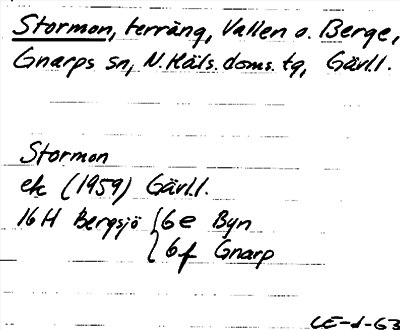 Stormon, terräng, Vallen o. Berge,
Gnarps sn, N. Häls. doms. tg, Gävl.l.
Stormon
ek (1959) Gävl.l.
16 H Bergsjö { 6 e Byn
6 f Gnarp
LE-d-63